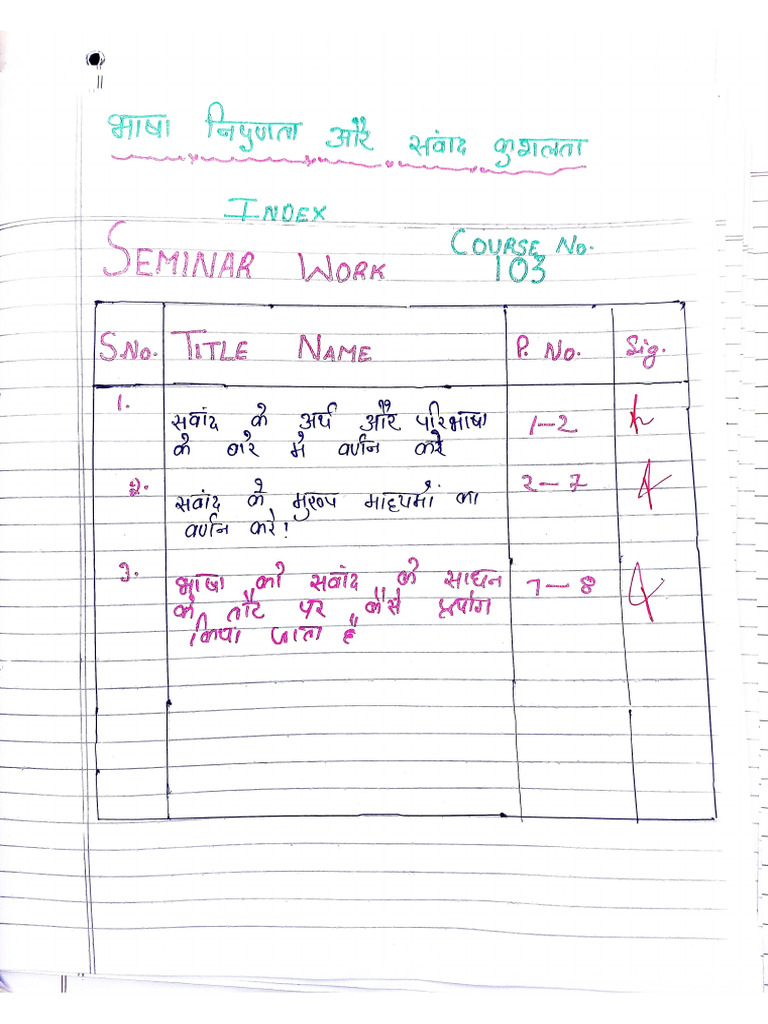 भाषा निपुणता और संवाद कुशलता
INDEX
SEMINAR WORK COURSE NO. 103
S.No. TITLE NAME P. No. Sig.
1. सवांद के अर्थ और परिभाषा 1-2
के बारे मे वर्णन करे
2. सवांद के मुख्य माध्यमों का 2-7
वर्णन करे!
3. भाषा को सवांद के साधन 7-8
के तौर पर कैसे प्रयोग
किया जाता है